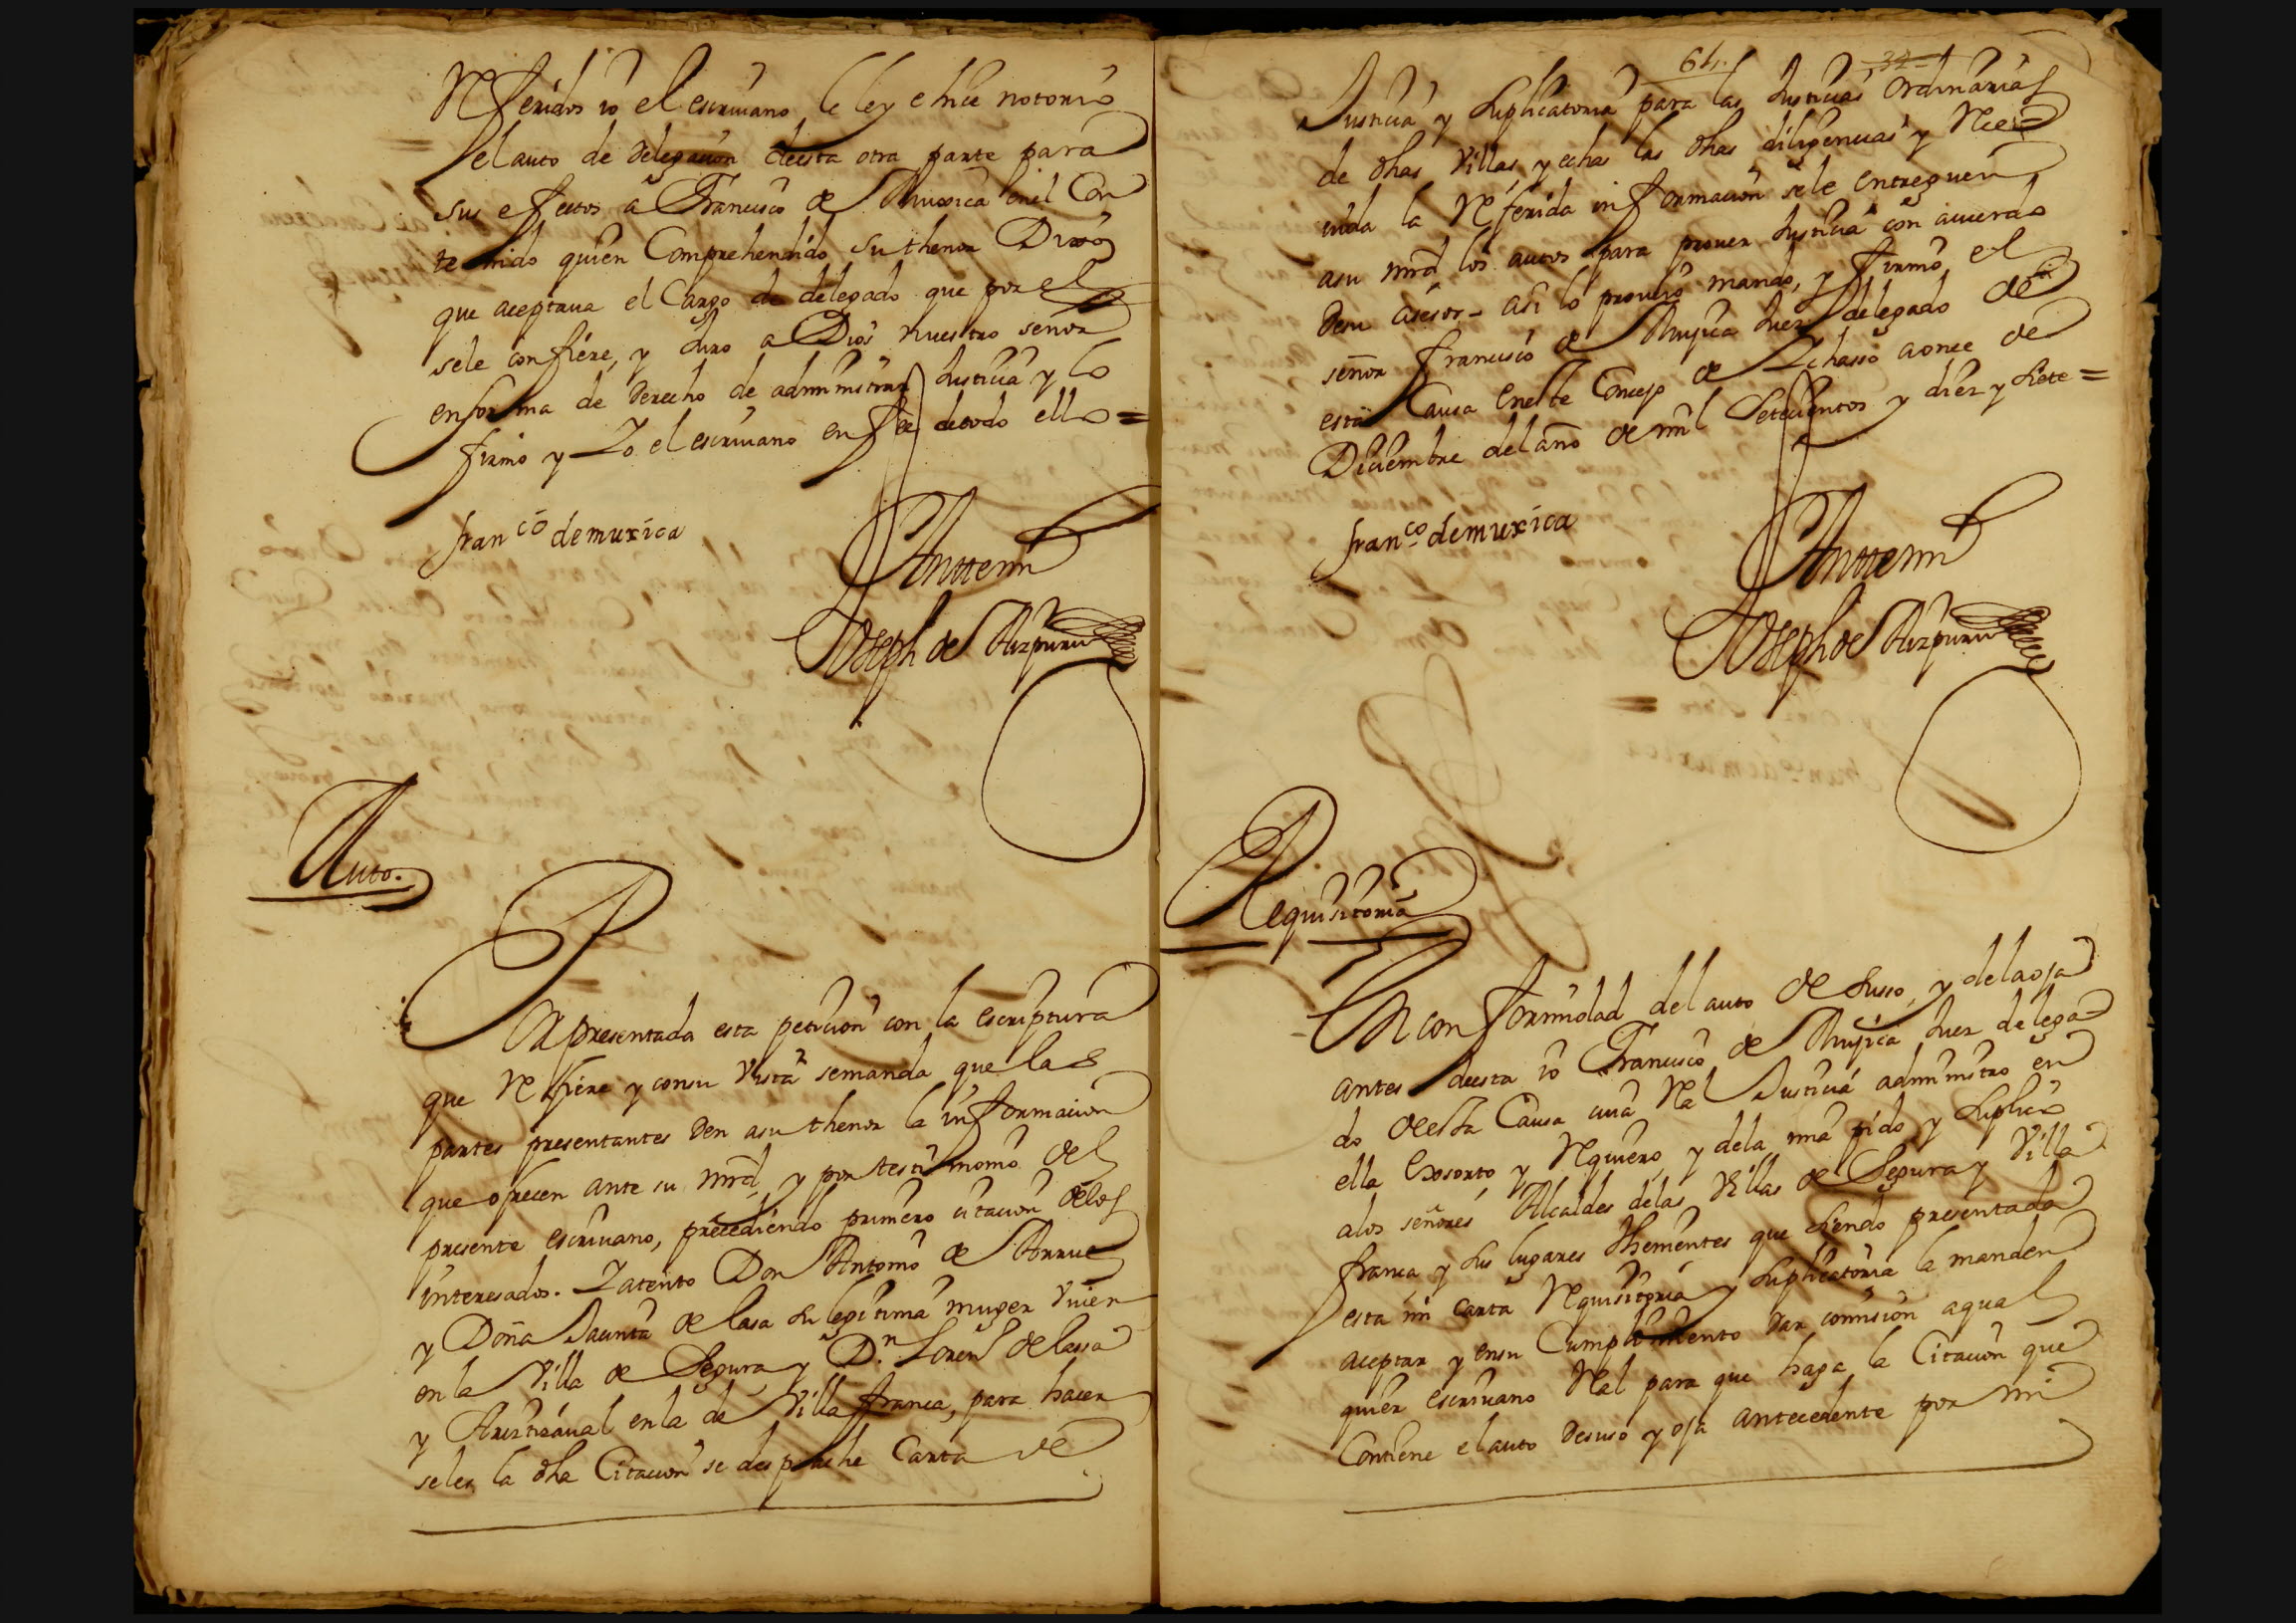 Referidos io el escriuano le ley e hice notorio
el auto de delegacion deesta otra parte para
sus efectos a Francisco de Muxica enel Con
tenido quien Comprehendido su thenor Dixo
que aceptaua el Cargo de delegado que por el
sele confiere, y Juro a Dios nuestro señor
enforma de derecho de administrar Justicia y lo
firmo y Yo el escriuano enfee detodo ello =
fran.co demuxica
Antemi
Joseph de Aizpuru
Auto.
Rpresentada esta peticion con la escriptura
que Refiere y consu Vista semanda que las
partes presentantes den asu thenor la informacion
que ofrecen ante su mrd, y por testimonio del
presente escriuano, precediendo primero citacion delos
interesados. Y atento Don Antonio de Arrue
y Doña Jacinta de lasa su legitima muger Viuen
en la Villa de Segura y D.n Loren de lassa
y Aristizaual enla de Villafranca, para hacer
seles la dha Citacion se despache Carta de
64. 32
Justicia y Suplicatoria para las Justicias Ordinarias
de dhas Villas, y echas las dhas diligencias y Rece
uida la Referida informacion sele entreguen
asu mrd los autos para proueer Justicia con acuerdo
desu asesor - asi lo proueio mando, y firmo el
señor francisco de Mujica Juez delegado de
esta Causa eneste Concejo de Ychasso aonce de
Diciembre del año de mil Setecientos y diez y siete =
fran.co demuxica
Antemi
Joseph de Aizpuru
Requisitoria
En conformidad del auto de suso, y delaoja
antes deesta io Francisco de Mujica Juez delega
do deesta Causa cuia Rl Justicia administro en
ella Exsorto y Requiero, y dela mia pido y suplico
alos señores Alcaldes delas Villas de Segura y Villa
franca y sus lugares thenientes que siendo presentada
esta mi Carta Requisitoria y Suplicatoria la manden
aceptar y ensu Cumplimiento dar comision aqual
quier escriuano Real para que haga la Citacion que
Contiene el auto desuso y oja antecedente por mi